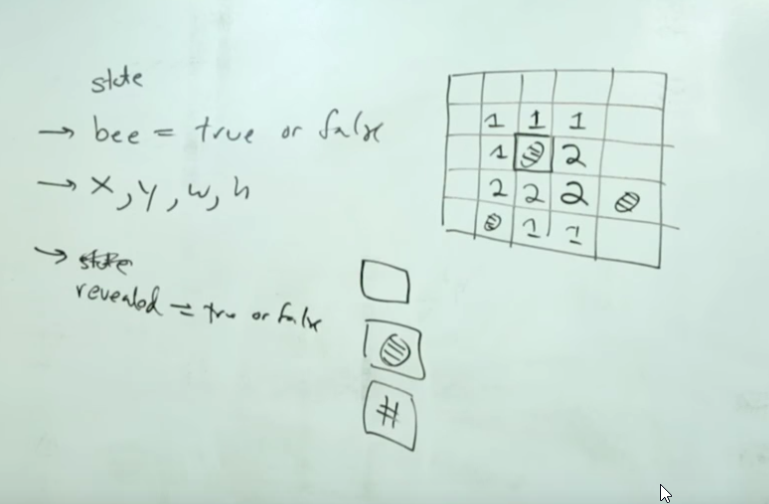 state
→ bee = true or false
→ x, y, w, h
→ state
revealed = true or false
1 1 1
1 2
2 2 2
1 1
#